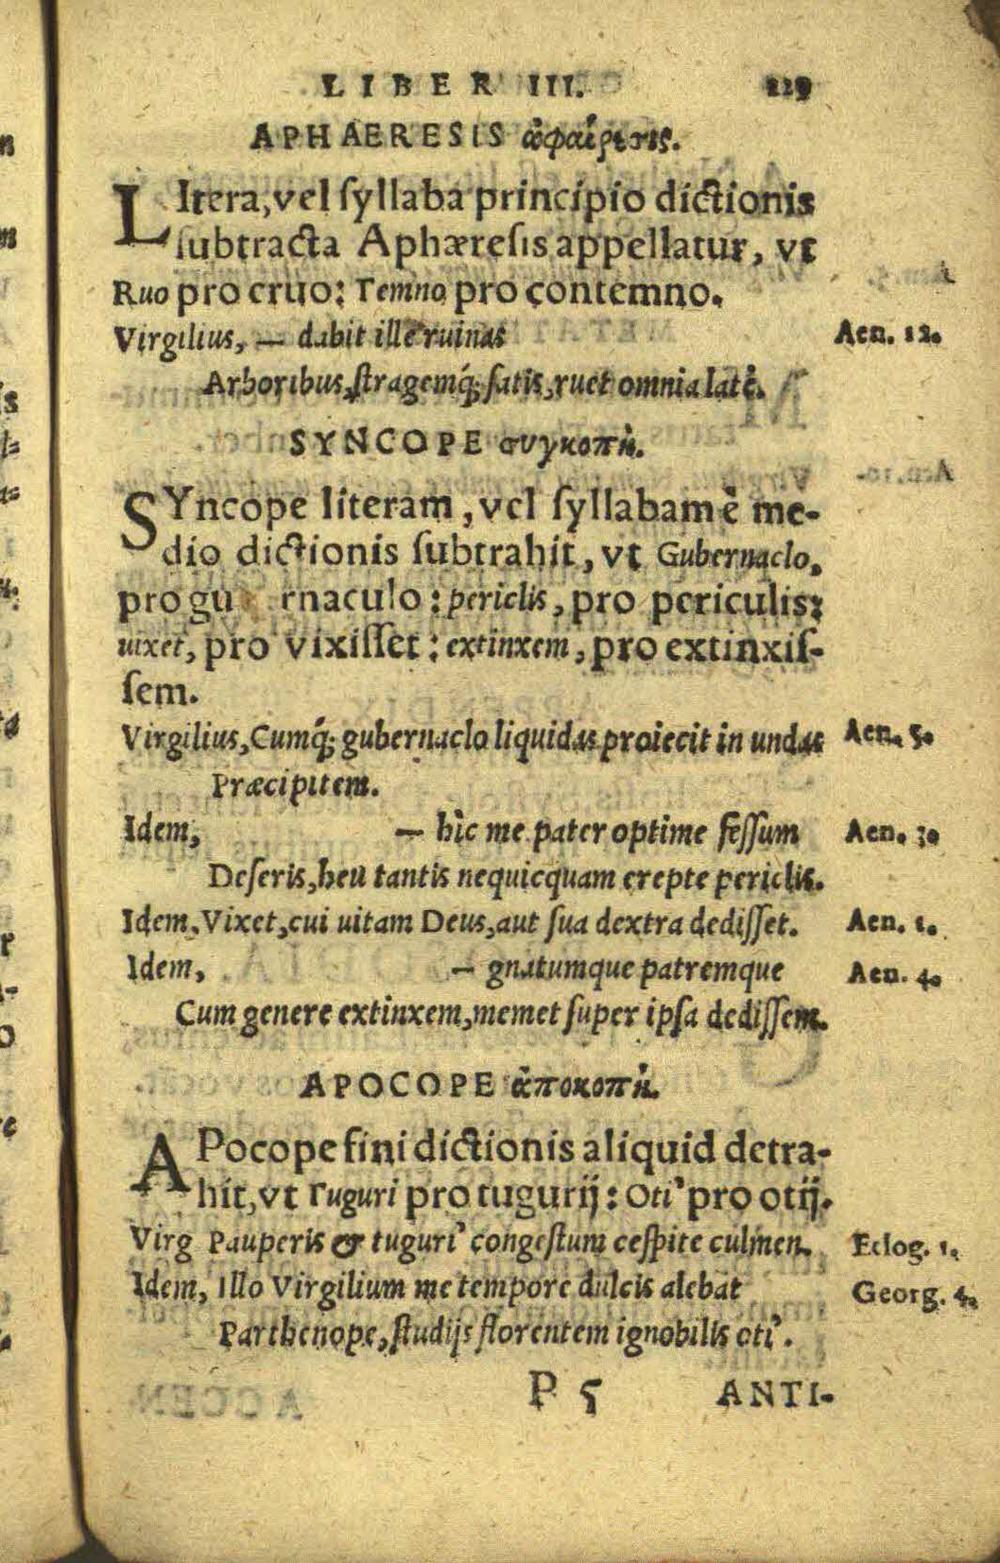 LIBER III. 229
APHAERESIS ἀφαίρεσις.
LItera, vel ſyllaba principio dictionis
ſubtracta Aphæreſis appellatur, vt
Ruo pro eruo: Temno pro contemno.
Virgilius, — dabit ille ruinas Aen. 12.
Arboribus, ſtragemq́; ſatis, ruet omnia latè.
SYNCOPE συγκοπὴ.
SYncope literam, vel ſyllabam è me-
dio dictionis ſubtrahit, vt Gubernaclo,
pro gu rnaculo: periclis, pro periculis:
uixet, pro vixiſſet: extinxem, pro extinxiſ-
ſem.
Virgilius, Cumq́; gubernaclo liquidas proiecit in undas Aen. 5.
Præcipitem.
Idem, — hìc me pater optime feſſum Aen. 3.
Deſeris, heu tantis nequicquam erepte periclis.
Idem, Vixet, cui uitam Deus, aut ſua dextra dediſſet. Aen. 1.
Idem, — gnatumque patremque Aen. 4.
Cum genere extinxem, memet ſuper ipſa dediſſem.
APOCOPE ἀποκοπὴ.
APocope fini dictionis aliquid detra-
hit, vt Tuguri pro tugurij: Oti' pro otij.
Virg Pauperis & tuguri' congeſtum ceſpite culmen. Eclog. 1.
Idem, Illo Virgilium me tempore dulcis alebat Georg. 4.
Parthenope, ſtudijs florentem ignobilis oti'.
P 5 ANTI-